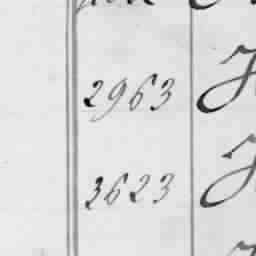 2963
3623